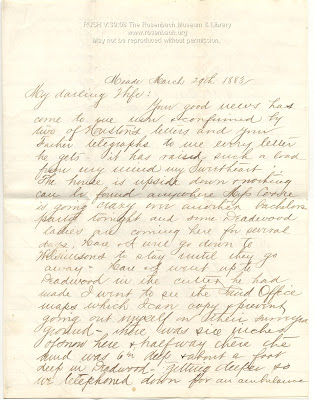 RUSH V:30:02 The Rosenbach Museum & Library
www.rosenbach.org
May not be reproduced without permission.
Meade March 29th 1882
My darling Wife:
Your good news has
come to me now & confirmed by
two of letters and your
Father telegraphs to me every letter
he gets - it has raised such a load
from my mind my Sweetheart
The house is upside down & nothing
can be found anywhere Mrs
is going crazy over another bachelors
party tonight and some Deadwood
ladies are coming here for several
days. & I will go down to
to stay until they go
away - & I went up to
Deadwood in the cutter he had
made I went to see the Field Office
maps which I can copy & prevent
going out myself on their surveyed
ground - there was six inches
of snow here & halfway there the
mud was 6 in deep & about a foot
deep in Deadwood - getting deeper so
we telephoned down for an ambulance